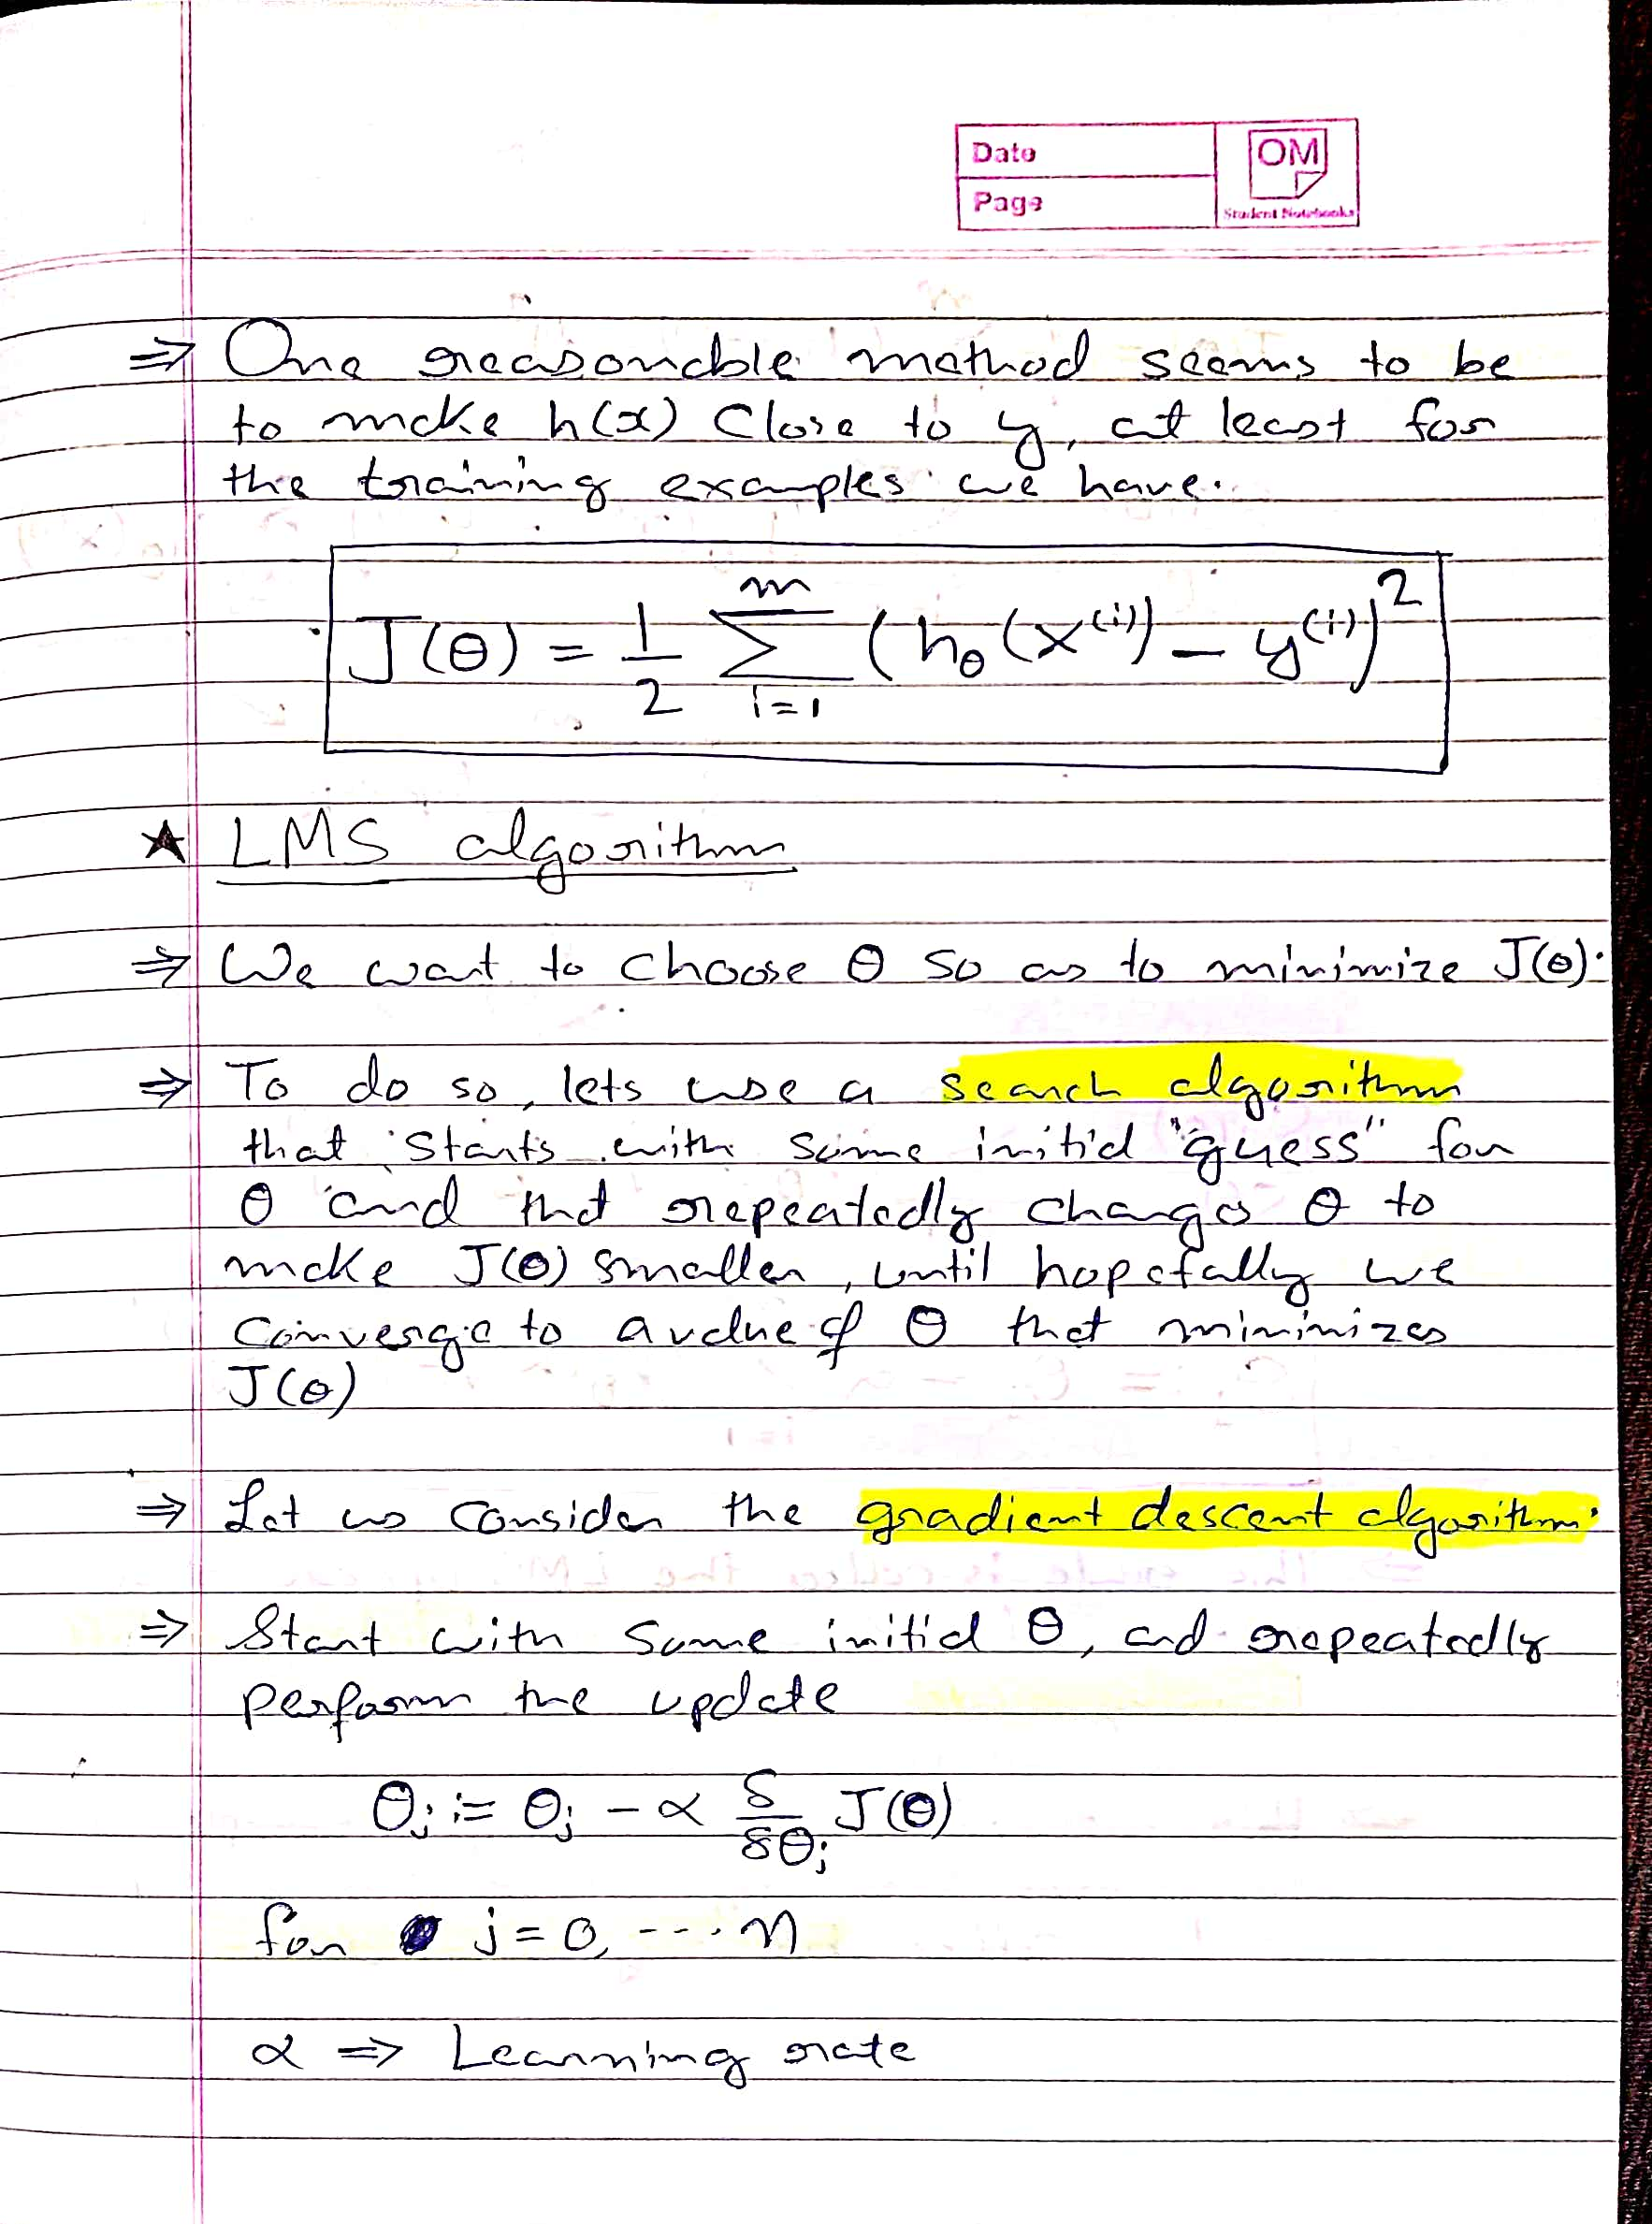 Date
Page
OM
Student Notebooks
⇒ One reasonable method seems to be
to make h(x) close to y, at least for
the training examples we have.
J(θ) = 1/2 Σ_{i=1}^{m} (h_θ(x^(i)) - y^(i))^2
★ LMS algorithm
⇒ We want to choose θ so as to minimize J(θ).
⇒ To do so, lets use a search algorithm
that starts with some initial "guess" for
θ and that repeatedly changes θ to
make J(θ) smaller, until hopefully we
converge to a value of θ that minimizes
J(θ)
⇒ Let us consider the gradient descent algorithm.
⇒ Start with some initial θ, and repeatedly
perform the update
θ_j := θ_j - α δ/δθ_j J(θ)
for j = 0, ---. n
α ⇒ Learning rate